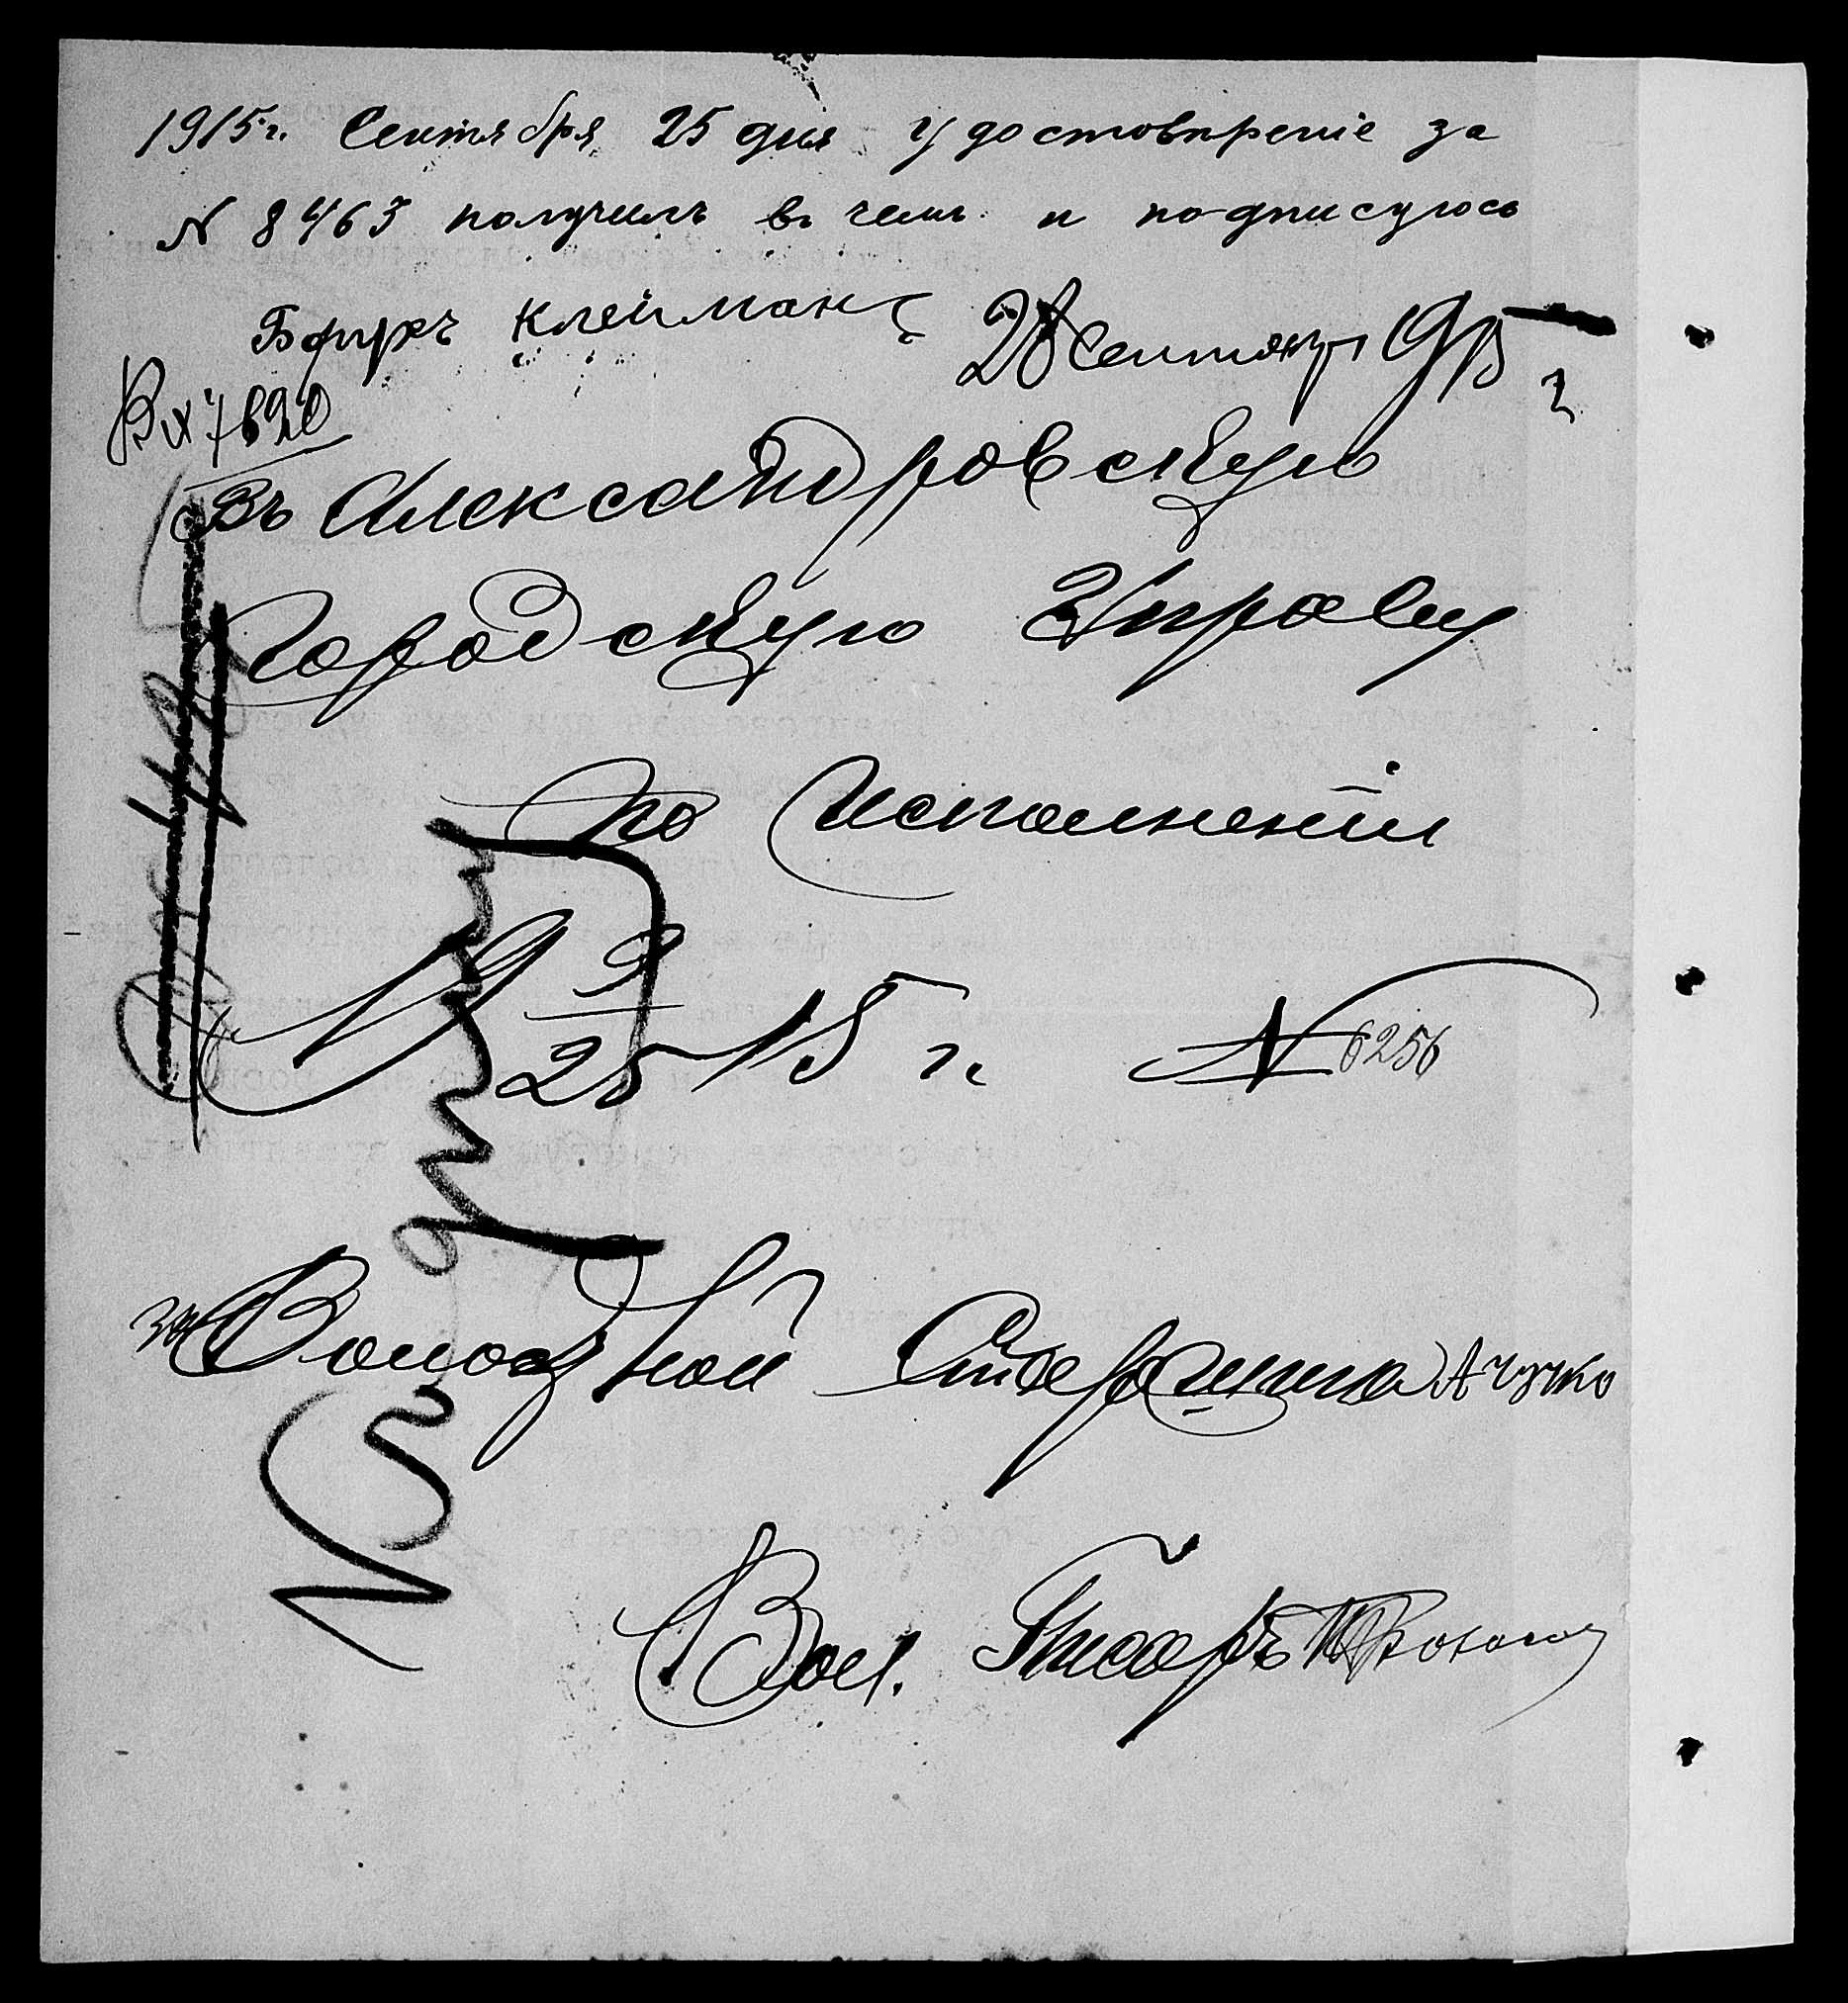 1915 г. Сентября 25 дня удостовѣреніе за
N 8463 получилъ въ чемъ и подписуюсь
Клейманъ
28 Сентября 1915 г
Вх 7620
Въ Александровскую
Городскую Управу
по исполненіи
19 9/25 15 г. N 6256
за Волостной Старшина А Чучко
Вол. Писарь